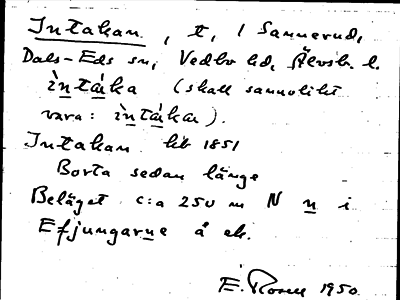 Intakan, t, i Sannerud,
Dals-Eds sn, Vedbo hd, Älvsb. l.
ìntá̀ka (skall sannolikt
vara: ìntá̀kan).
Intakan hb 1851
Borta sedan länge
Beläget c:a 250 m N n i
Efjungarne å ek.
E. Rosell 1950